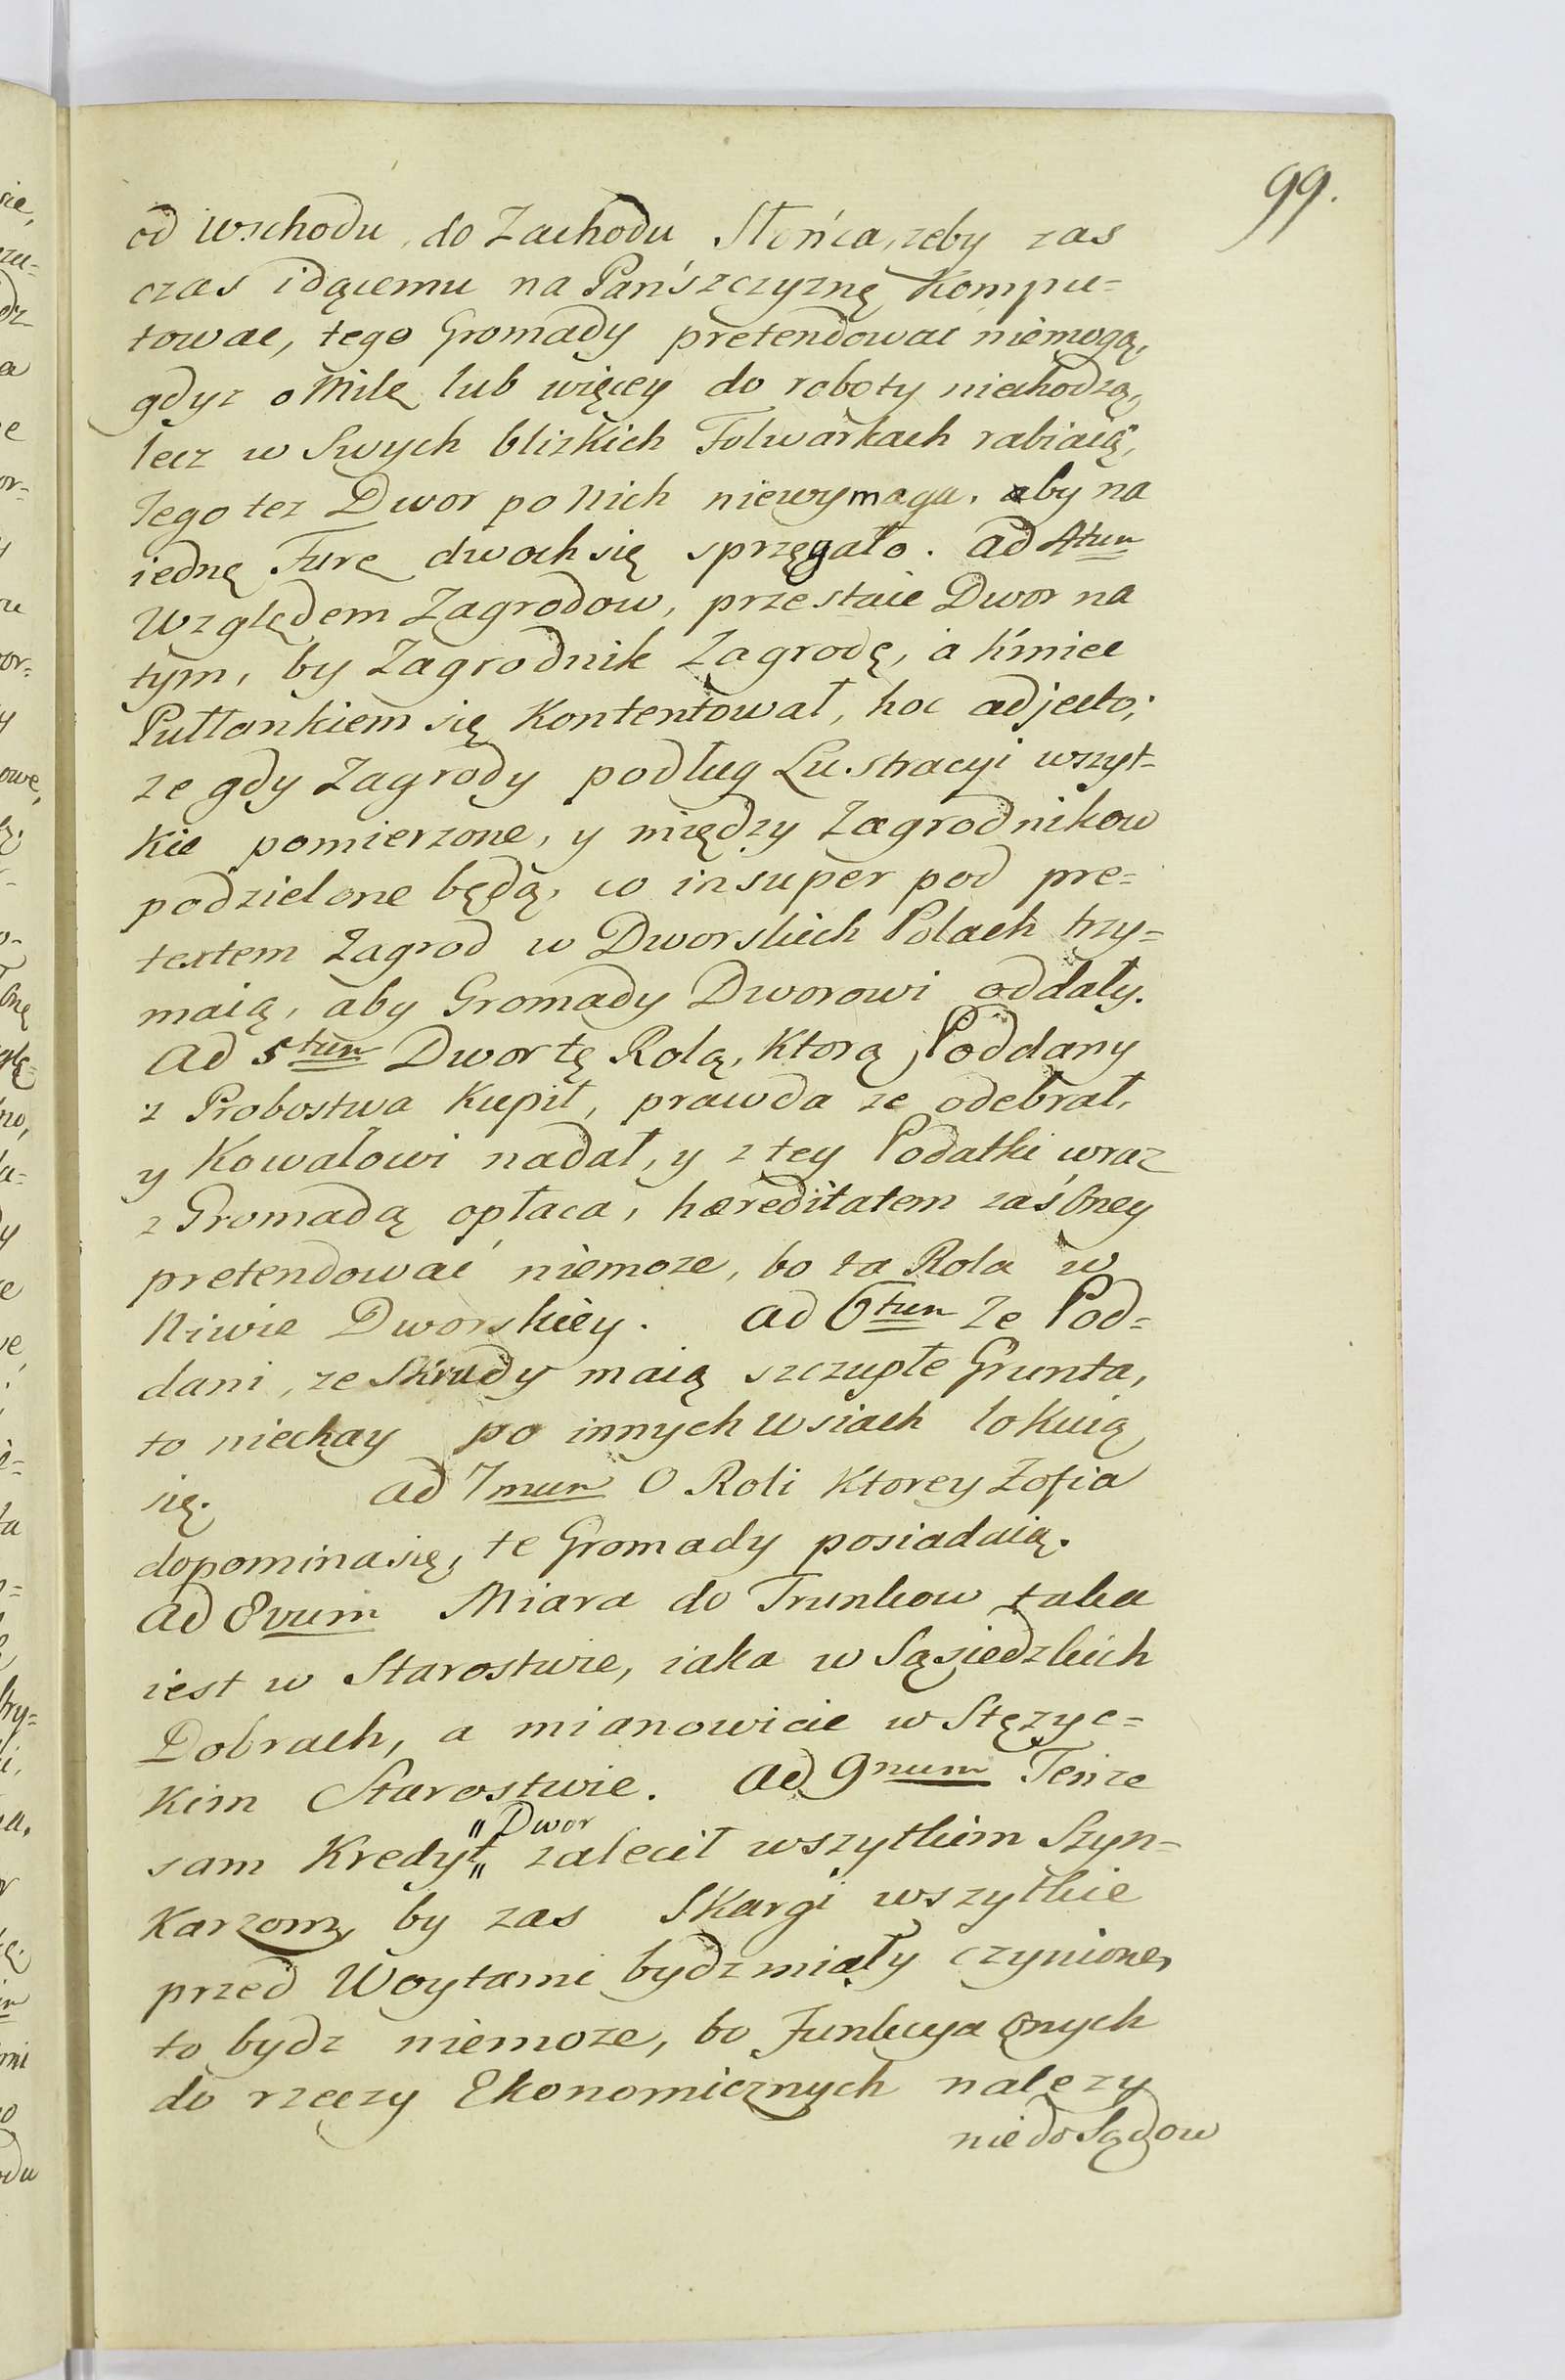 99.
od Wschodu, do Zachodu Słońca, zeby zas
czas idącemu na Pańszczyznę Kompu=
towac, tego Gromady pretendowac niemogą,
gdyz o Milę lub więcey do roboty niechodzą,
lecz w Swych blizkich Folwarkach rabiaią,
Tego tez Dwor po Nich niewymaga, aby na
iednę Furę dwoch się sprzęgało. Ad 4tum
Względem Zagrodow, przestaie Dwor na
tym, by Zagrodnik Zagrodę, a Kmiec
Pułłankiem się Kontentował, hoc adjecto;
ze gdy Zagrody podług Lustracyi wszyt=
kie pomierzone, y między Zagrodnikow
podzielone będą, co insuper pod pre=
textem Zagrod w Dworskich Polach trzy=
maią, aby Gromady Dworowi oddały.
Ad 5tum Dwor tę Rolą, Ktorą Poddany
z Probostwa Kupił, prawda ze odebrał,
y Kowalowi nadał, y z tey Podatki wraz
z Gromadą opłaca, hæreditatem zaś Oney
pretendowac niemoze, bo ta Rola w
Niwie Dworskiey. Ad 6tum Ze Pod=
dani, ze Skrudy maią szczupłe Grunta,
to niechay po innych Wsiach lokuią
się. Ad 7mum O Roli Ktorey Zofia
dopomina się, te Gromady posiadaią.
Ad 8vum Miara do Trunkow taka
iest w Starostwie, iaka w Sąsiedzkich
Dobrach, a mianowicie w Stęzyc=
kim Starostwie. Ad 9num Tenze
sam Kredyt "Dwor" zalecił wszytkim Szyn=
karzom, by zas Skargi wszytkie
przed Woytami bydz miały czynione,
to bydz niemoze, bo Funkcya Onych
do rzeczy Ekonomicznych nalezy
nie do Sądow